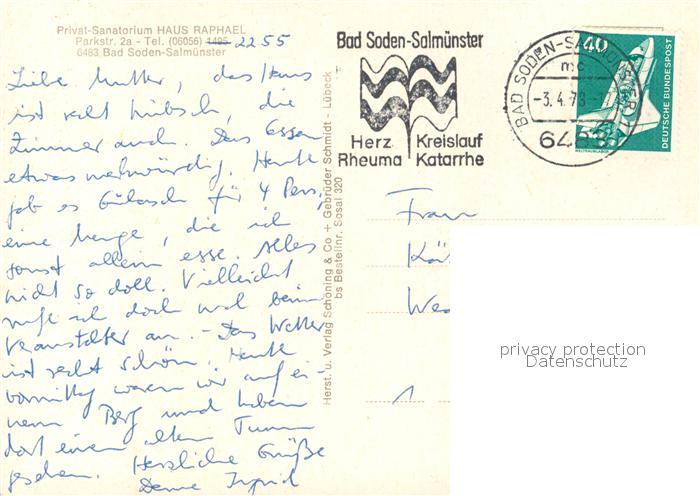 Privat-Sanatorium HAUS RAPHAEL
Parkstr. 2a - Tel. (06056) 1495 2255
6483 Bad Soden-Salmünster
Liebe Mutter, das Haus
ist recht hübsch, die
Zimmer auch. Das Essen
etwas merkwürdig. Heute
gab es Gulasch für 4 Pers.,
eine Menge, die ich
sonst allein esse. Alles
nicht so doll. Vielleicht
rufe ich doch mal beim
Veranstalter an. - Das Wetter
ist recht schön. Heute
vormittag waren wir auf ei-
nem Berg und haben
dort einen alten Turm
gesehen. Herzliche Grüße
Deine Ingrid
Herst. u. Verlag Schöning & Co + Gebrüder Schmidt - Lübeck
bs Bestellnr. Sosal 320
Bad Soden-Salmünster
Herz Kreislauf
Rheuma Katarrhe
BAD SODEN-SALMÜNSTER 1
mc
-3.4.78-
40
DEUTSCHE BUNDESPOST
WELTRAUMLABOR
Frau
privacy protection
Datenschutz
1